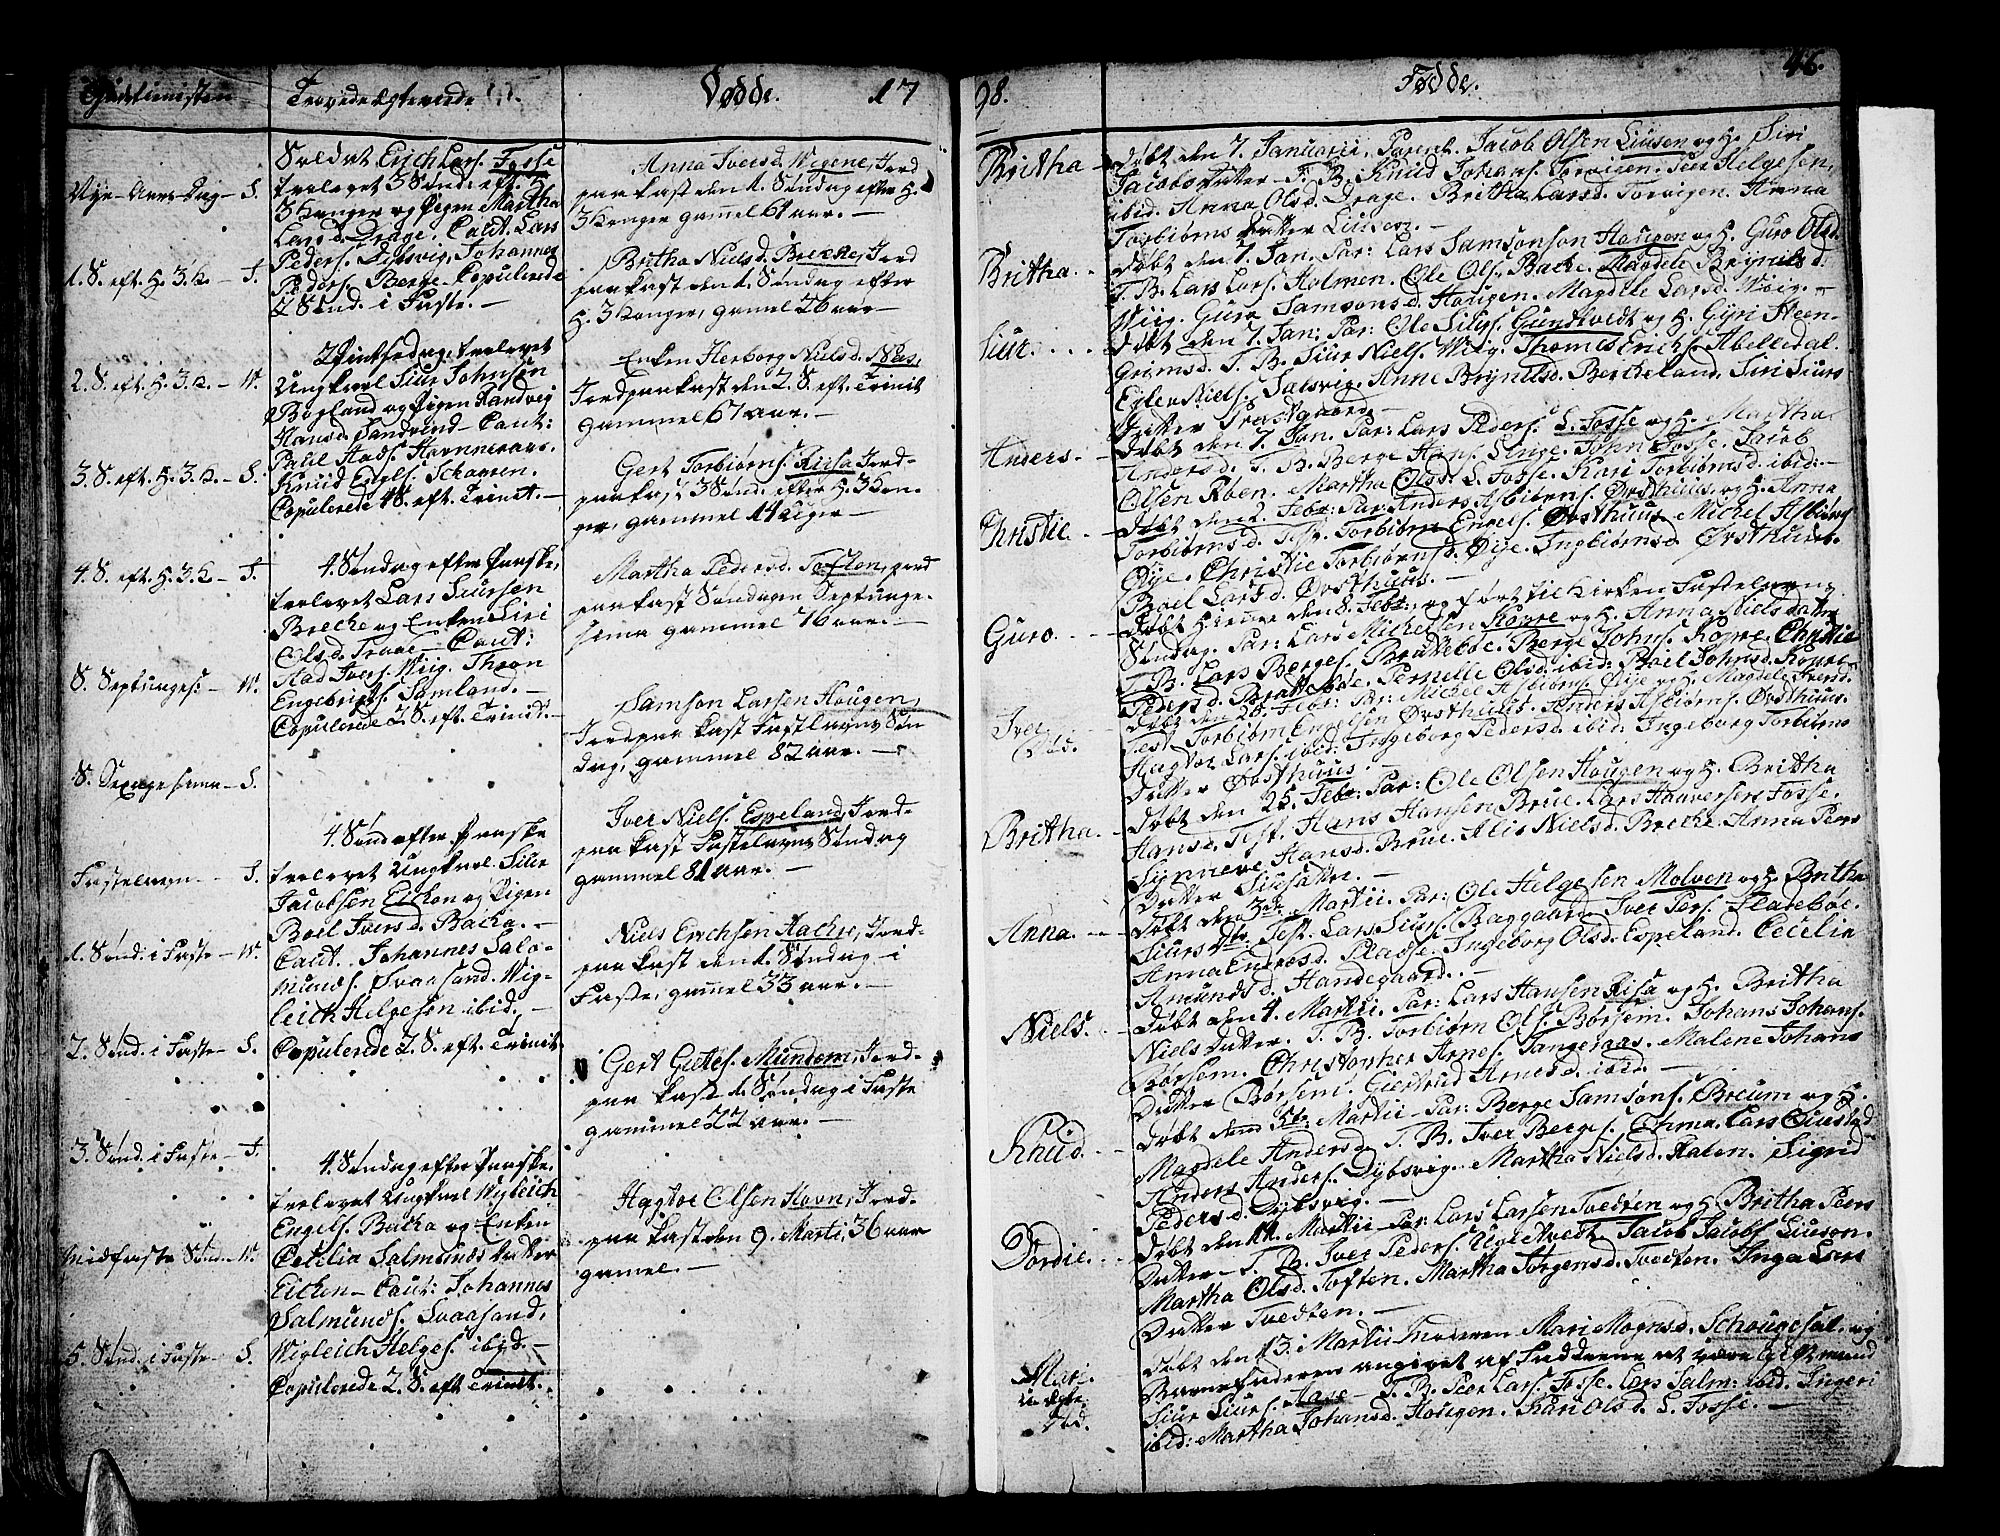 Trovede ægtevede
Døde.
17
98.
Fødde.
46.
Nye-Aars-Dag – S.
1. S. eft. H. 3 K. – T.
2. S. eft. H. 3. K. – W.
3. S. eft. H. 3. K. – S.
4. S. eft. H. 3. K – T.
S. Septuages: – W.
S. Sexagesima – S.
Fastelavn – T.
1. Sønd. i Faste – W.
2. Sønd. i Faste – S.
3. Sønd. i Faste – T.
Midfaste Sønd. – W.
5. Sønd. i Faste – S.
Soldat Erich Lars. Fosse
trolovet 3 Sønd. eft. H.
3 Konger og Pigen Martha
Larsd. Drage. Caut. Lars
Peders. Johannes
Peders. Berge. Copulerede
2 Sønd. i Faste. –
2 Pintsedag trolovet
Ungkarl Siur Johnsen
Bogland og Pigen Randvig
Hansd. Sandvind – Caut:
Paul Aads.
Knud Engels. Schaaren.
Copulerede 4 S. eft. Trinit. –
4. Søndag efter Paaske,
trolovet Lars Siursen
Breche og Enken Siri
Olsd. Traae – Caut:
Aad Ivers. Wiig. Thoon
Engebrigts. Samland. –
Copulerede 2. S. eft. Trinit: –
4. Sønd. efter Paaske
trolovet Ungkarl Siur
Jacobsen Eichen og Pigen
Boel Iversd. Backa. –
Caut. Johannes Salo-
munds. Svaasand. Wig-
leich Helgesen ibid. –
Copulerede 2. S. eft. Trinit.
4. Søndag efter Paaske,
trolovet Ungkarl Wigleich
Engels. Backa og Enken
Cecelia Salmonds Datter
Eichen – Caut: Johannes
Salmunds. Svaasand,
Wigleich Helges. ibid. –
Copulerede 2. S. eft Trinit. –
Anna Iversd. Wigene, Jord
paakast den 1. Søndag efter H.
3 Konger gamel 61 aar. –
Britha Nielsd. Breche, Jord
paakast den 1. Søndag efter
H. 3 Konger, gamel 26 aar –
Enken Herborg Nielsd. Nes,
Jordpaakast den 2. S. eft. Trinit
gammel 67 aar. –
Gert Torbiørns. Riisa Jord-
paakast 3 Sønd. efter H. 3 Kon-
ger, gammel 14 Uger –
Martha Pedersd. Toften, jord
paakast Søndagen Septuage-
sima gammel 76 aar. –
Samson Larsen Hougen,
Jordpaakast Fastelavns Søn
dag, gammel 82 aar. –
Iver Niels. Espeland, Jord-
paakast Fastelavns Søndag
gammel 81 aar. –
Niels Erichsen Aachre, Jord-
paakast den 1. Søndag i
Faste, gammel 33 aar. –
Gert Giettes. Mundem, Jord-
paakast 1. Søndag i Faste
gammel 22 aar. –
Hagtor Olsen Havn, Jord-
paakast den 9. Marti, 36 aar
gamel. –
Britha – Døbt den 7. Januarii, Parent. Jacob Olsen Liusen og H. Siri
Jacobsdatter – F. B. Knud Johans. Torvigen. Siur Helgesen
ibid. Anna Olsd. Drage. Britha Larsd. Torvigen. Anna
Torbiørns Datter Liusen. –
Britha. – Døbt den 7. Jan. Par: Lars Samsonson Hougen og H. Guro Olsd.
T. B. Lars Lars. Holmen. Ole Ols. Backe. Magdele Brynilsd:
Wiig. Guro Samsonsd. Hougen. Magdele Larsd. Wiig. –
Siur. – Døbt den 7. Jan: Par: Ole Gundtvedt og H. Gyri Steen-
Grimsd. T. B. Siur Niels. Wiig. Thomes Erichs. Abelledal.
Niels. Salsvig. Anne Brynilsd. Bercheland. Siri Siurs
Datter Prastgaard –
Anders. – Døbt den 7. Jan. Par: Lars Peders. L. Fosse og H. Martha
Andersd. T. B. Berge Hans. John Fosse. Jacob
Olsen Røen. Martha Olsd. L. Fosse. Kari Torbiørnsd. ibid: –
Christie. – Døbt den 2. Febr: Par: Anders Asbiørns. Øvsthuus, og H. Anna
Torbiørnsd. Test. Torbiørn Engels. Øvsthuus. Michel Asbiørns
Øije. Christie Torbiørnsd. Øije. Ingbiørnsd. Øvsthuus.
Boel Larsd. Øvsthuus. –
Guro. – Døbt hiemme den 8. Febr: og ført til Kirken Fastelavns
Søndag. Par: Lars Michelsen Kopre og H. Anna Nielsdatter
T. B. Lars Berges. Bratteboe. Berge Johns. Kopre. Christie
Pedersd. Bratteboe. Pernelle Olsd. ibid: Boel Johnsd. Kopre –
Iver – Døbt den 25. Febr: Par: Michel Asbiørns. Øije og H. Magdele Iversd.
Test – Torbiørn Engelsen Øvsthuus. Anders Asbiørns. Øvsthuus:
Hagtor Lars. ibid: Ingeborg Pedersd. ibid. Ingeborg Torbiørns
Datter Øvsthuus –
Britha. – Døbt den 25. Febr: Par: Ole Olsen Hougen og H. Britha
Hansd. Test. Hans Hansen Brue. Lars Haaversen Fosse.
Synneve Hansd. Brue. Alis Nielsd. Breche. Anna Peers
Datter Siusater. –
Anna. – Døbt den 3de Martii. Par: Ole Helgesen Molven og H. Britha
Siursdtr. Test. Lars Siurs. Baggaard. Iver Pers. Flateboe.
Anna Endresd. Pladse. Ingeborg Olsd. Espeland. Cecelia
Amundsd. Handegaard. –
Niels. – Døbt den 4. Martii. Par: Lars Hansen Risa og H. Britha
Niels Datter. T. B. Torbiørn Ols. Børsem. Johans Johans.
Børsem. Christopher Arnes. Tangeraas. Malene Johans
Datter Børsem. Giertrud Arnesd. ibid. –
Knud. – Døbt den 5te Martii – Par: Berge Samsons. Breum og H.
Magdele Andersd. – T. B. Iver Berges. Lars
Anders Anders. Dybsvig. Martha Nielsd. Sigrid
Pedersd. Dybsvig. –
Dordie. – Døbt den 11. Martii – Par: Lars Larsen Tvedten og H. Britha Peers
Datter – T. B. Iver Peders. Ugletvedt. Jacob Jacobs. Liuson.
Martha Olsd. Toften. Martha Torgersd. Tvedten. Inga Lars
Datter Tvedten. –
Mari. – Døbt den 13. i Martii Moderen Mari Mognsd. Schougesæl. og
uægte Barnefaderen angivet af Faddrene at være Gift Mand
Siur Siurs. Aase – T. B. Peer Lars. Fosse. Lars Salm: ibid. Ingeri
ibid: Martha Johansd. Hougen. Kari Olsd. L. Fosse. –